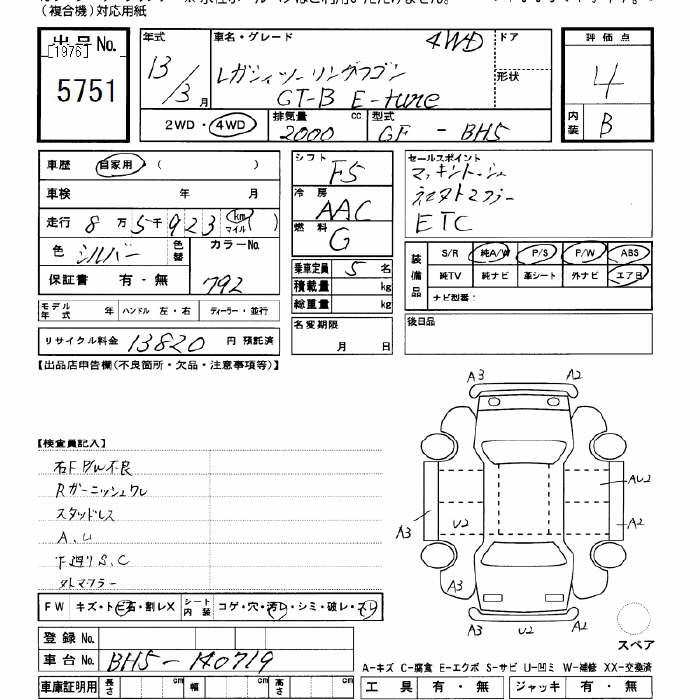 (複合機)対応用紙
出品No.
[1976]
5751
年式
13/3月
車名・グレード
4WD
レガシィツーリングワゴン
GT-B E-tune
ドア
形状
2WD・4WD
排気量
2000 cc
型式
GF - BH5
評価点
4
内装
B
車歴 自家用 ( )
車検 年 月
走行 8万5千923 km マイル ( )
色 シルバー 色替 カラーNo.
保証書 有・無 792
モデル年式 年 ハンドル 左・右 ディーラー・並行
リサイクル料金 13820 円 預託済
シフト F5
冷房 AAC
燃料 G
乗車定員 5 名
積載量 kg
総重量 kg
名変期限
月 日
セールスポイント
マッキントッシュ
ETC
装備品 S/R 純A/W P/S P/W ABS
純TV 純ナビ 革シート 外ナビ エアB
ナビ型番:
後日品
【出品店申告欄(不良箇所・欠品・注意事項等)】
【検査員記入】
右F P/W不良
Rガーニッシュワレ
スタッドレス
A、U
下廻りS、C
外マフラー
FW キズ・トビ石・割レX シート内装 コゲ・穴・汚レ・シミ・破レ・スレ
登録No.
車台No. BH5-140719
車庫証明用 長さ cm 幅 cm 高さ cm
A3 A2
AU2
A3 U2 A2
A3
U2 A2
スペア
A-キズ C-腐食 E-エクボ S-サビ U-凹ミ W-補修 XX-交換済
工具 有・無 ジャッキ 有・無